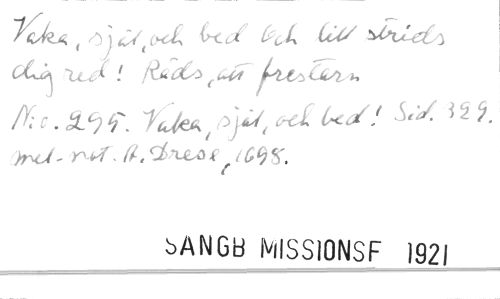 Vaka, själ, och bed Och till strids
dig red! Råds, att frestarn
N:o. 295. Vaka, själ, och bed! Sid. 329.
mel-not. A. Drese, 1698.
SANGB MISSIONSF 1921